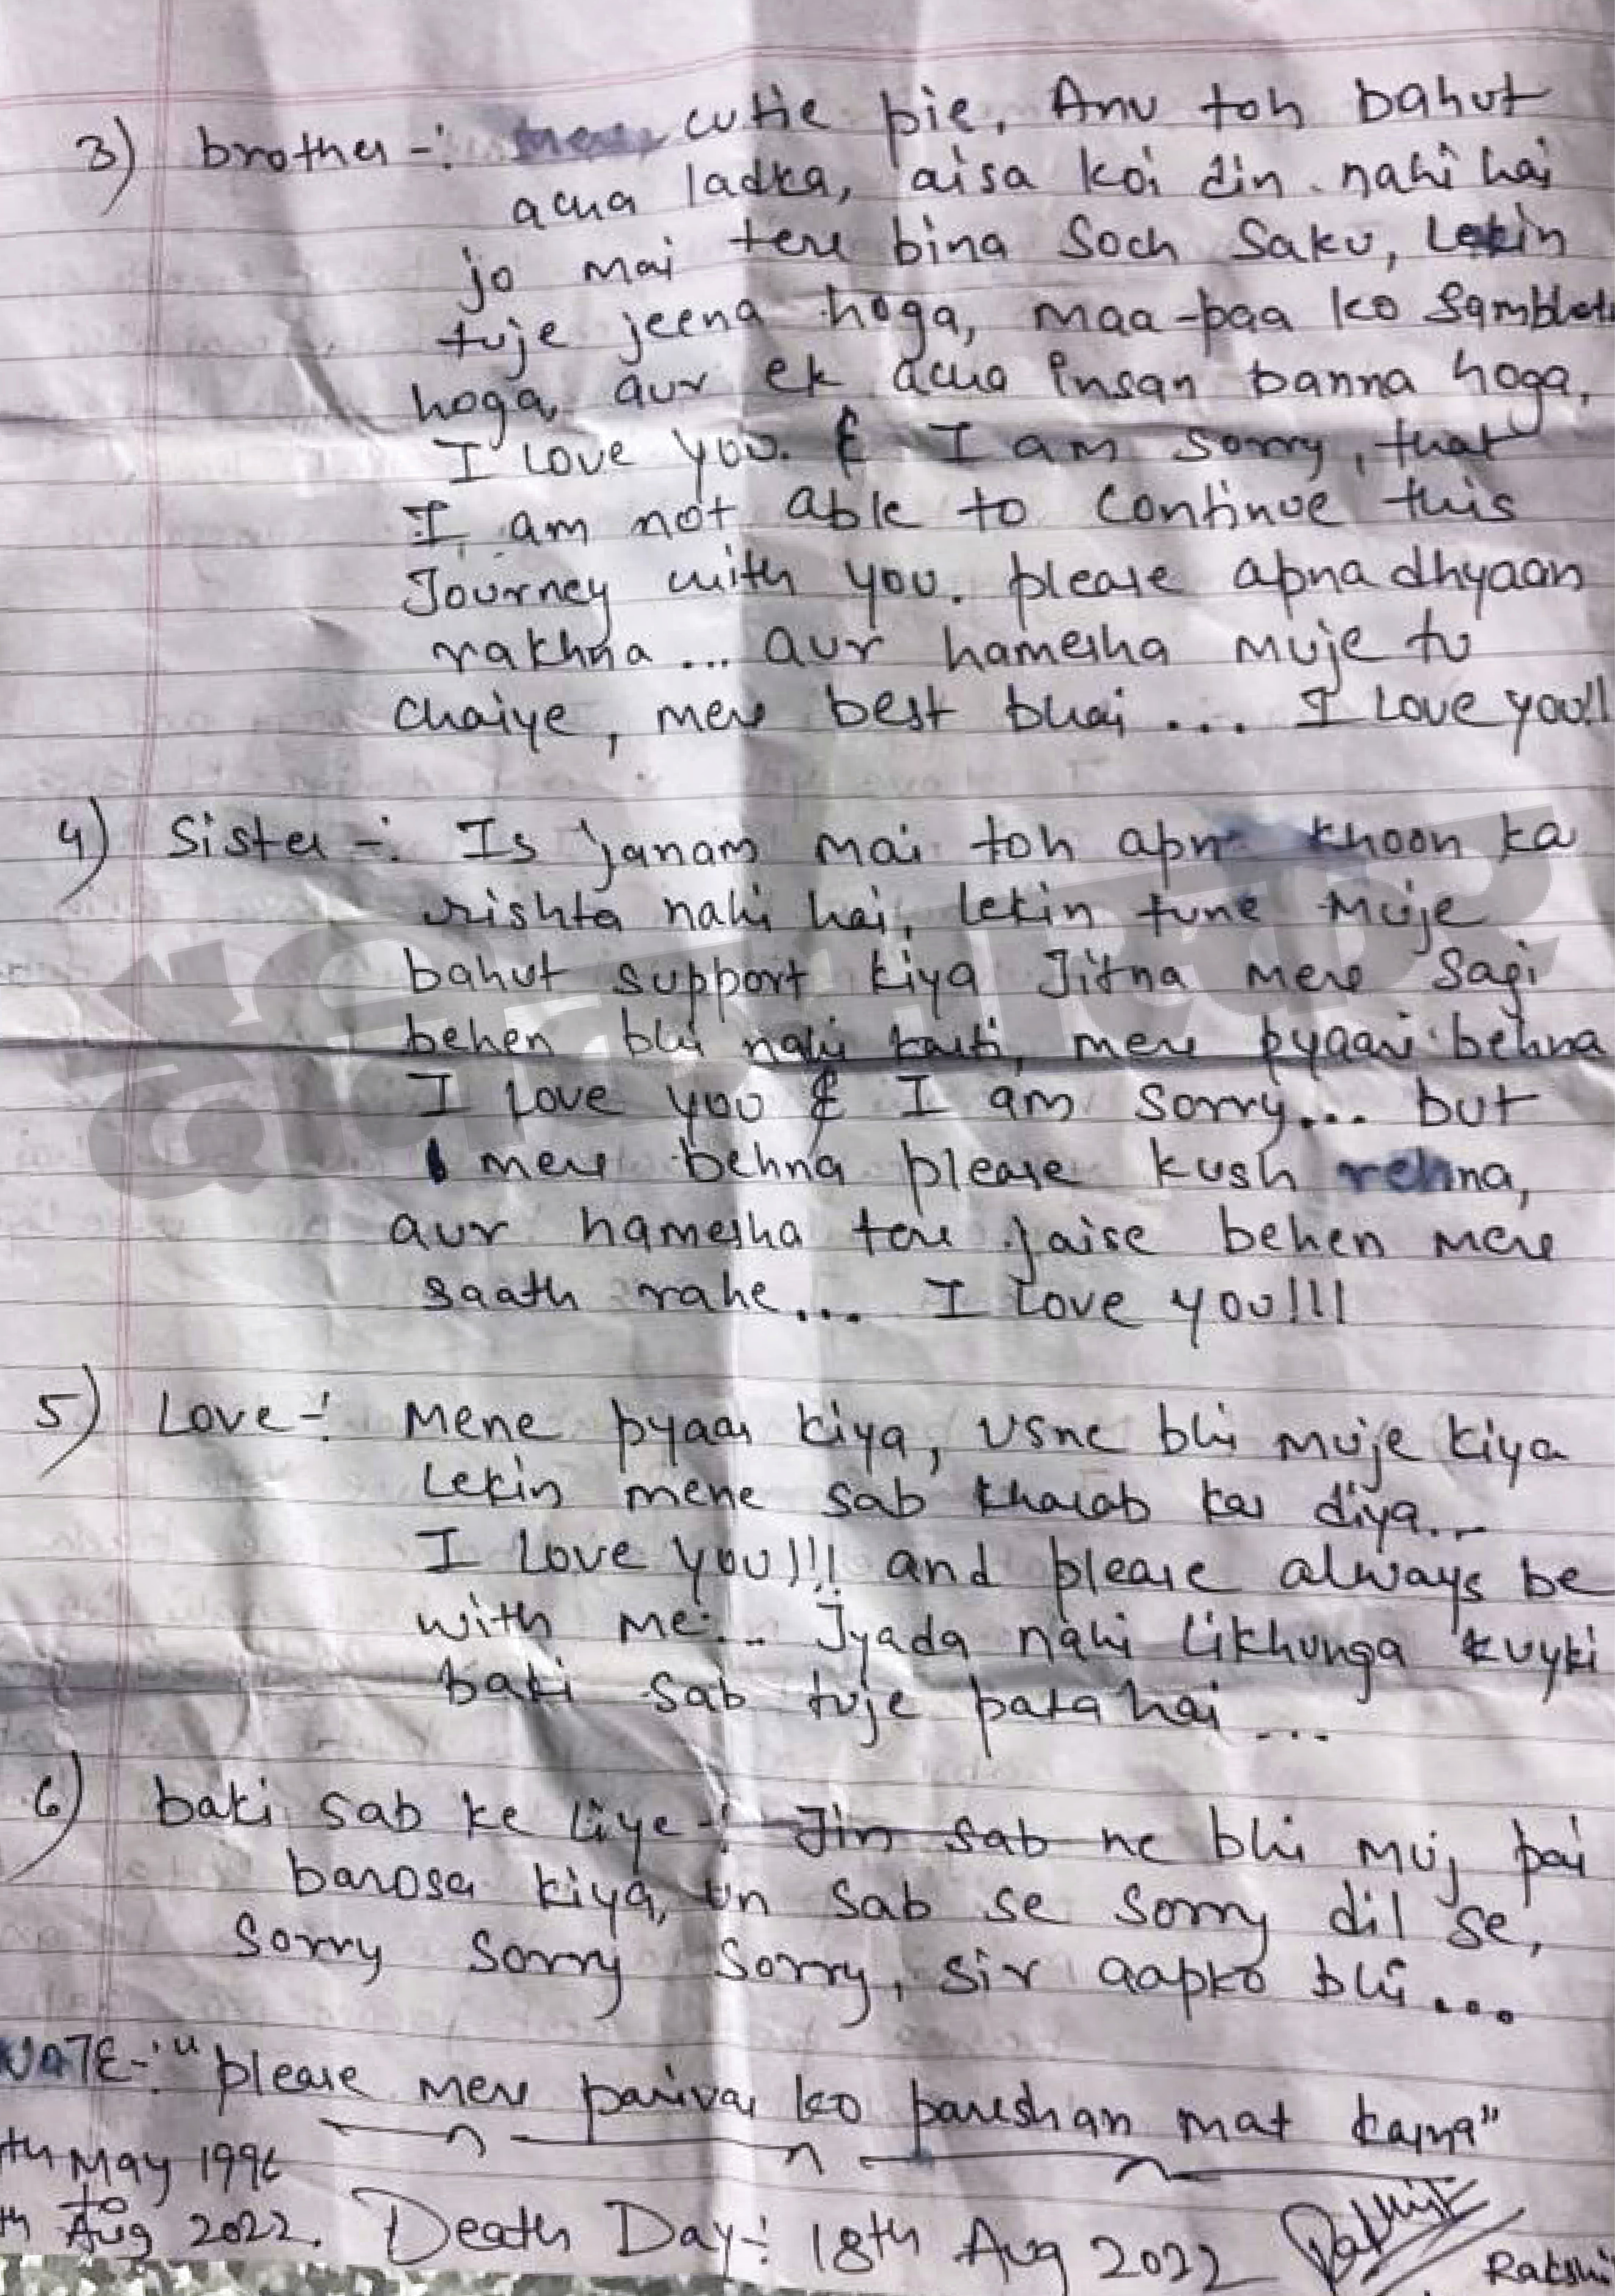 3) brother -: cutie pie, Anu toh bahut
acha ladka, aisa koi din nahi hai
jo mai tere bina soch saku, Lekin
tuje jeena hoga, maa-paa ko
hoga, aur ek acha insan banna hoga,
I love you. & I am sorry, that
I am not able to continue this
Journey with you. please apna dhyaan
rakhna ... aur hamesha muje tu
chaiye, mere best bhai ... I Love you!!
4) Sister -: Is janam mai toh apna khoon ka
rishta nahi hai, lekin tune muje
bahut support kiya Jitna mere sagi
behen bhi nahi karti, mere pyaari behna
I Love you & I am sorry... but
mere behna please kush rehna,
aur hamesha tere jaise behen mere
saath rahe... I Love you!!!
5) Love -: Mene pyaar kiya, usne bhi muje kiya
Lekin mene sab kharab kar diya...
I Love you!!! and please always be
with me... Jyada nahi likhunga kuyki
baki sab tuje pata hai ...
6) baki sab ke liye -: Jin sab ne bhi muj pai
barosa kiya, un sab se sorry dil se,
sorry sorry sorry, sir aapko bhi ...
NOTE -: "please mere parivar ko pareshan mat karna"
th May 1996
to
th Aug 2022. Death Day -: 18th Aug 2022
Rakshi